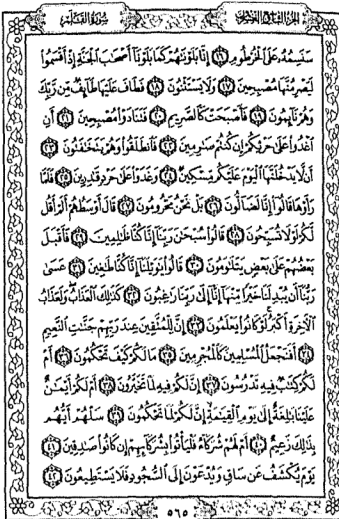 الجزء التاسع والعشرون
سورة القلم
سَنَسِمُهُ عَلَى الْخُرْطُومِ ﴿١٦﴾ إِنَّا بَلَوْنَاهُمْ كَمَا بَلَوْنَا أَصْحَابَ الْجَنَّةِ إِذْ أَقْسَمُوا
لَيَصْرِمُنَّهَا مُصْبِحِينَ ﴿١٧﴾ وَلَا يَسْتَثْنُونَ ﴿١٨﴾ فَطَافَ عَلَيْهَا طَائِفٌ مِّن رَّبِّكَ
وَهُمْ نَائِمُونَ ﴿١٩﴾ فَأَصْبَحَتْ كَالصَّرِيمِ ﴿٢٠﴾ فَتَنَادَوْا مُصْبِحِينَ ﴿٢١﴾ أَنِ
اغْدُوا عَلَى حَرْثِكُمْ إِن كُنتُمْ صَارِمِينَ ﴿٢٢﴾ فَانطَلَقُوا وَهُمْ يَتَخَافَتُونَ ﴿٢٣﴾
أَن لَّا يَدْخُلَنَّهَا الْيَوْمَ عَلَيْكُم مِّسْكِينٌ ﴿٢٤﴾ وَغَدَوْا عَلَى حَرْدٍ قَادِرِينَ ﴿٢٥﴾ فَلَمَّا
رَأَوْهَا قَالُوا إِنَّا لَضَالُّونَ ﴿٢٦﴾ بَلْ نَحْنُ مَحْرُومُونَ ﴿٢٧﴾ قَالَ أَوْسَطُهُمْ أَلَمْ أَقُل
لَّكُمْ لَوْلَا تُسَبِّحُونَ ﴿٢٨﴾ قَالُوا سُبْحَانَ رَبِّنَا إِنَّا كُنَّا ظَالِمِينَ ﴿٢٩﴾ فَأَقْبَلَ
بَعْضُهُمْ عَلَى بَعْضٍ يَتَلَاوَمُونَ ﴿٣٠﴾ قَالُوا يَا وَيْلَنَا إِنَّا كُنَّا طَاغِينَ ﴿٣١﴾ عَسَى
رَبُّنَا أَن يُبْدِلَنَا خَيْرًا مِّنْهَا إِنَّا إِلَى رَبِّنَا رَاغِبُونَ ﴿٣٢﴾ كَذَلِكَ الْعَذَابُ وَلَعَذَابُ
الْآخِرَةِ أَكْبَرُ لَوْ كَانُوا يَعْلَمُونَ ﴿٣٣﴾ إِنَّ لِلْمُتَّقِينَ عِندَ رَبِّهِمْ جَنَّاتِ النَّعِيمِ
﴿٣٤﴾ أَفَنَجْعَلُ الْمُسْلِمِينَ كَالْمُجْرِمِينَ ﴿٣٥﴾ مَا لَكُمْ كَيْفَ تَحْكُمُونَ ﴿٣٦﴾ أَمْ
لَكُمْ كِتَابٌ فِيهِ تَدْرُسُونَ ﴿٣٧﴾ إِنَّ لَكُمْ فِيهِ لَمَا تَخَيَّرُونَ ﴿٣٨﴾ أَمْ لَكُمْ أَيْمَانٌ
عَلَيْنَا بَالِغَةٌ إِلَى يَوْمِ الْقِيَامَةِ إِنَّ لَكُمْ لَمَا تَحْكُمُونَ ﴿٣٩﴾ سَلْهُمْ أَيُّهُم
بِذَلِكَ زَعِيمٌ ﴿٤٠﴾ أَمْ لَهُمْ شُرَكَاءُ فَلْيَأْتُوا بِشُرَكَائِهِمْ إِن كَانُوا صَادِقِينَ ﴿٤١﴾
يَوْمَ يُكْشَفُ عَن سَاقٍ وَيُدْعَوْنَ إِلَى السُّجُودِ فَلَا يَسْتَطِيعُونَ ﴿٤٢﴾
٥٦٥